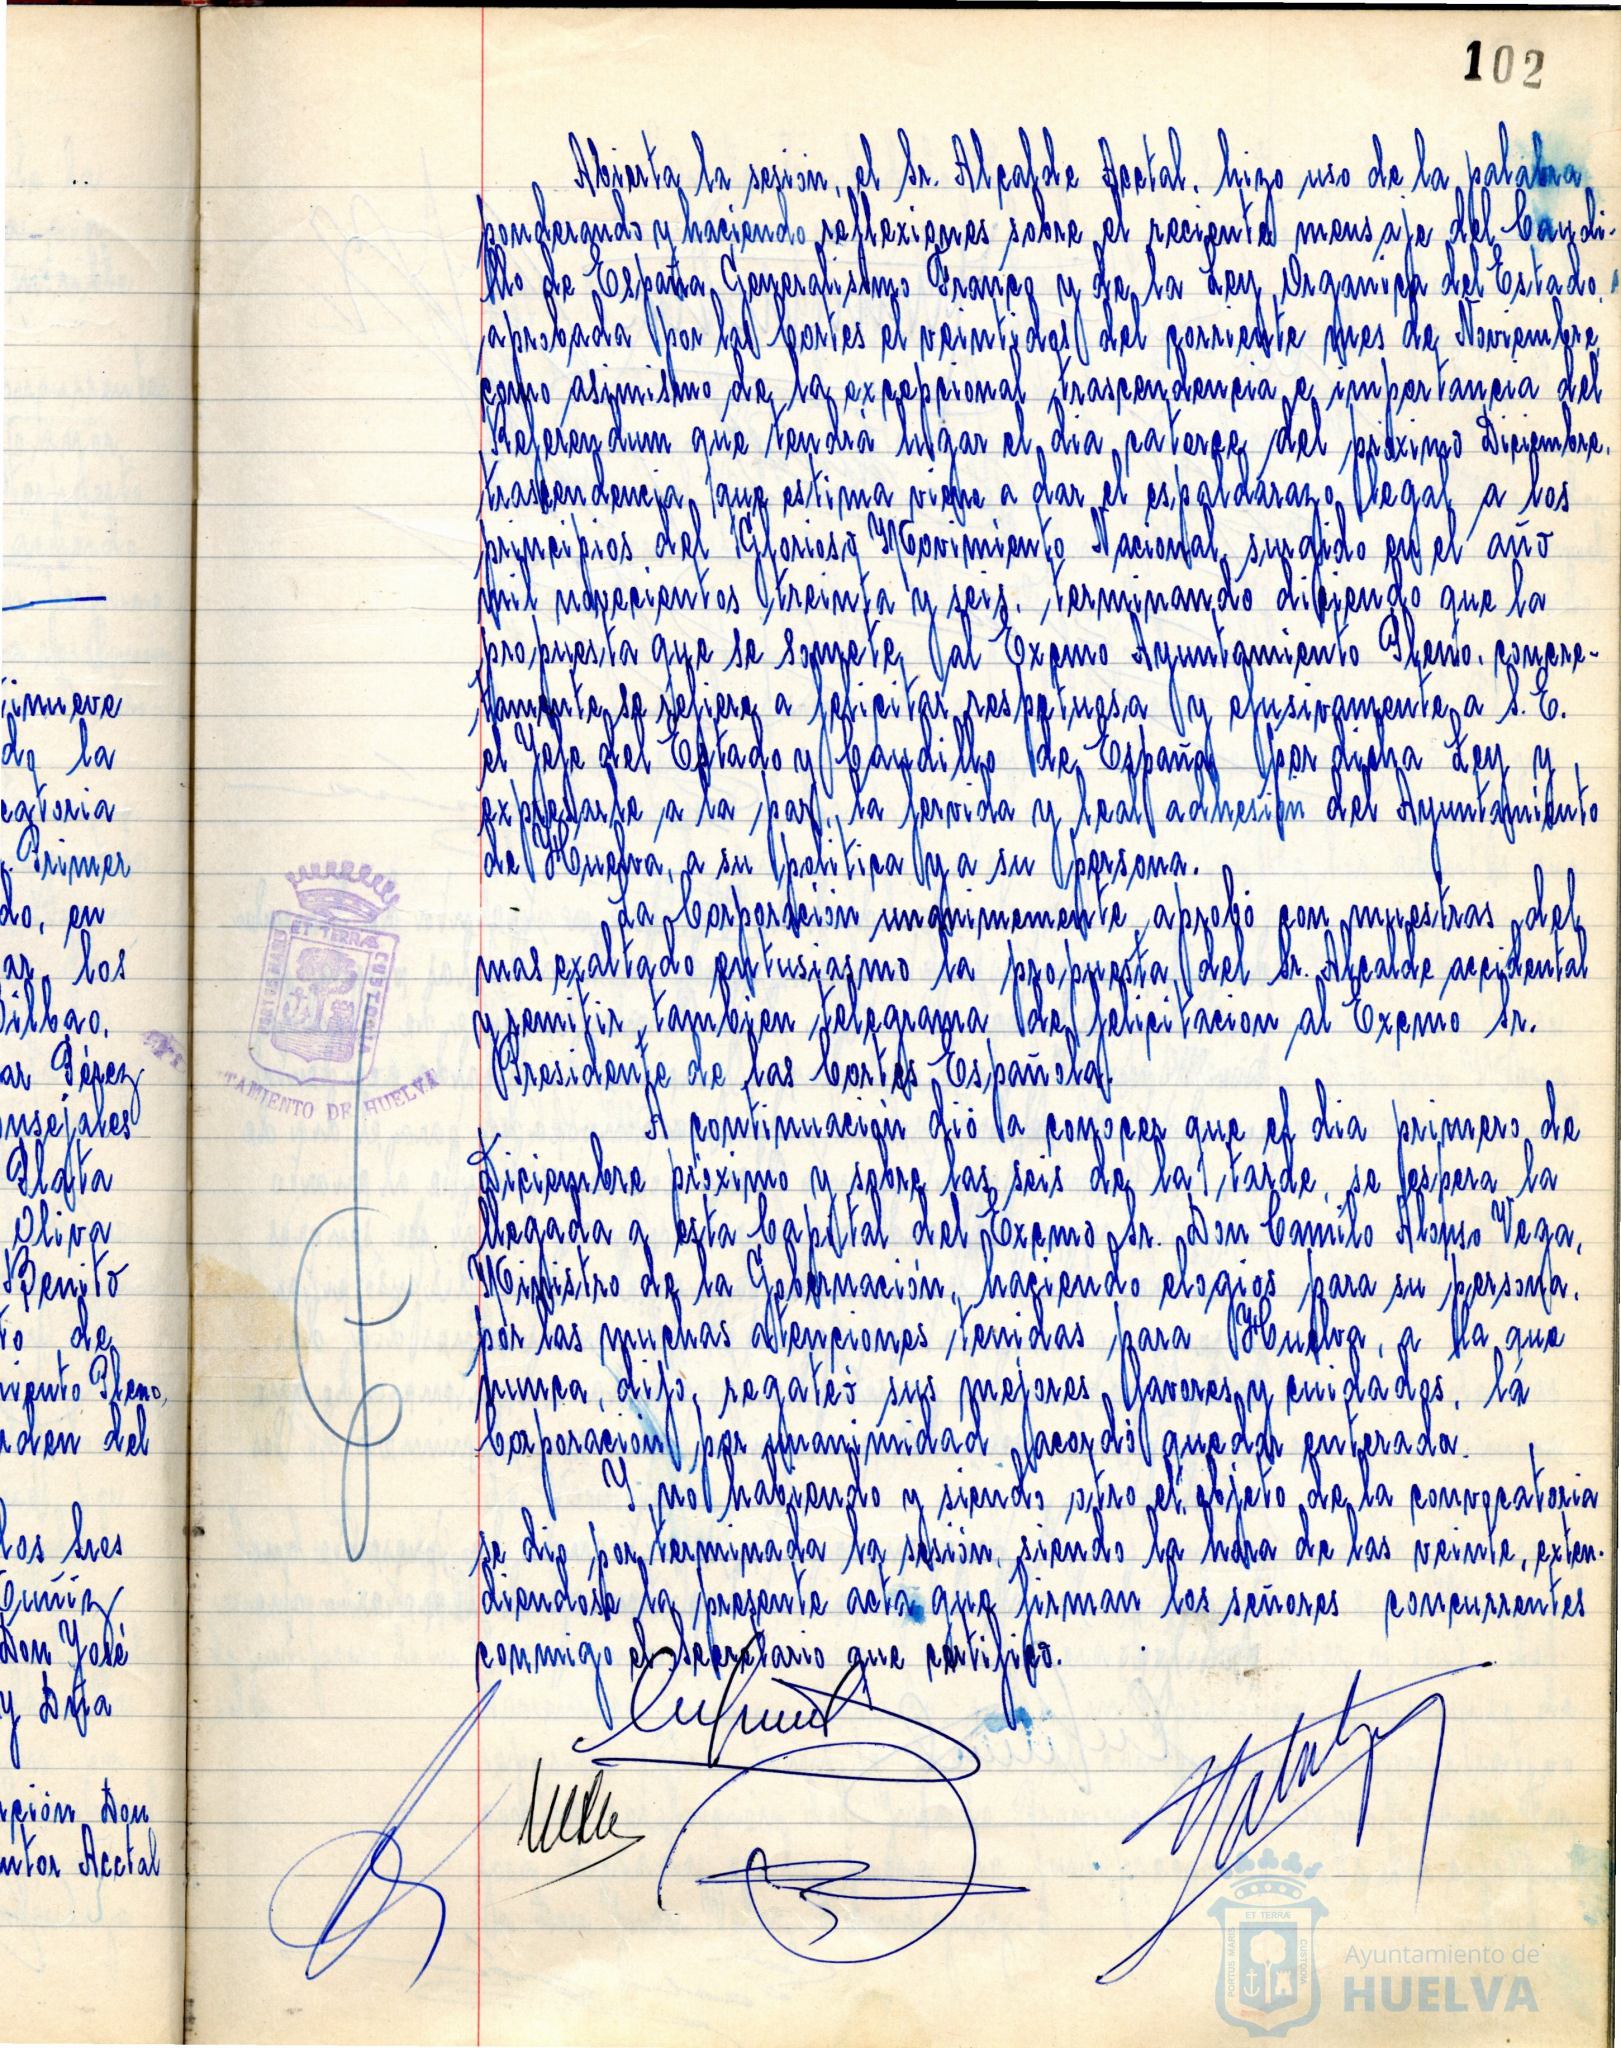 102
Abierta la sesión, el Sr. Alcalde Acctal. hizo uso de la palabra
ponderando y haciendo reflexiones sobre el reciente mensaje del Caudi-
llo de España Generalísimo Franco y de la Ley Organica del Estado,
aprobada por las Cortes el veintidos del corriente mes de Noviembre,
como asimismo de la excepcional trascendencia e importancia del
Referendum que tendrá lugar el dia catorce del próximo Diciembre,
trascendencia que estima viene a dar el espaldarazo legal a los
principios del Glorioso Movimiento Nacional surgido en el año
mil novecientos treinta y seis, terminando diciendo que la
propuesta que se somete al Excmo Ayuntamiento Pleno, concre-
tamente se refiere a felicitar respetuosa y efusivamente a S. E.
el Jefe del Estado y Caudillo de España por dicha Ley y
expresarle a la par, la fervida y leal adhesión del Ayuntamiento
de Huelva, a su política y a su persona.
La Corporación unanimemente aprobó con muestras del
mas exaltado entusiasmo la propuesta del Sr. Alcalde accidental
y remitir tambien telegrama de felicitacion al Excmo Sr.
Presidente de las Cortes Española.
A continuación dió a conocer que el dia primero de
Diciembre próximo y sobre las seis de la tarde, se espera la
llegada a esta Capital del Excmo Sr. Don Camilo Alonso Vega,
Ministro de la Gobernación, haciendo elogios para su persona,
por las muchas atenciones tenidas para Huelva, a la que
nunca, dijo, regateó sus mejores favores y cuidados, la
Corporación por unanimidad acordó quedar enterada.
Y no habiendo y siendo otro el objeto de la convocatoria
se dio por terminada la sesión, siendo la hora de las veinte, exten-
diendose la presente acta que firman los señores concurrentes
conmigo el Secretario que certifico.
inueve
de la
catoria
Primer
do, en
ar los
Bilbao,
ar Pérez
onsejales
Plata
Oliva
Benito
to de
miento Pleno,
rden del
los Sres
Don José
y Dña
ación Don
ntor Acctal
PORTUS MARIS ET TERRÆ CUSTODIA
TAMIENTO DE HUELVA
PORTUS MARIS ET TERRÆ CUSTODIA
Ayuntamiento de
HUELVA